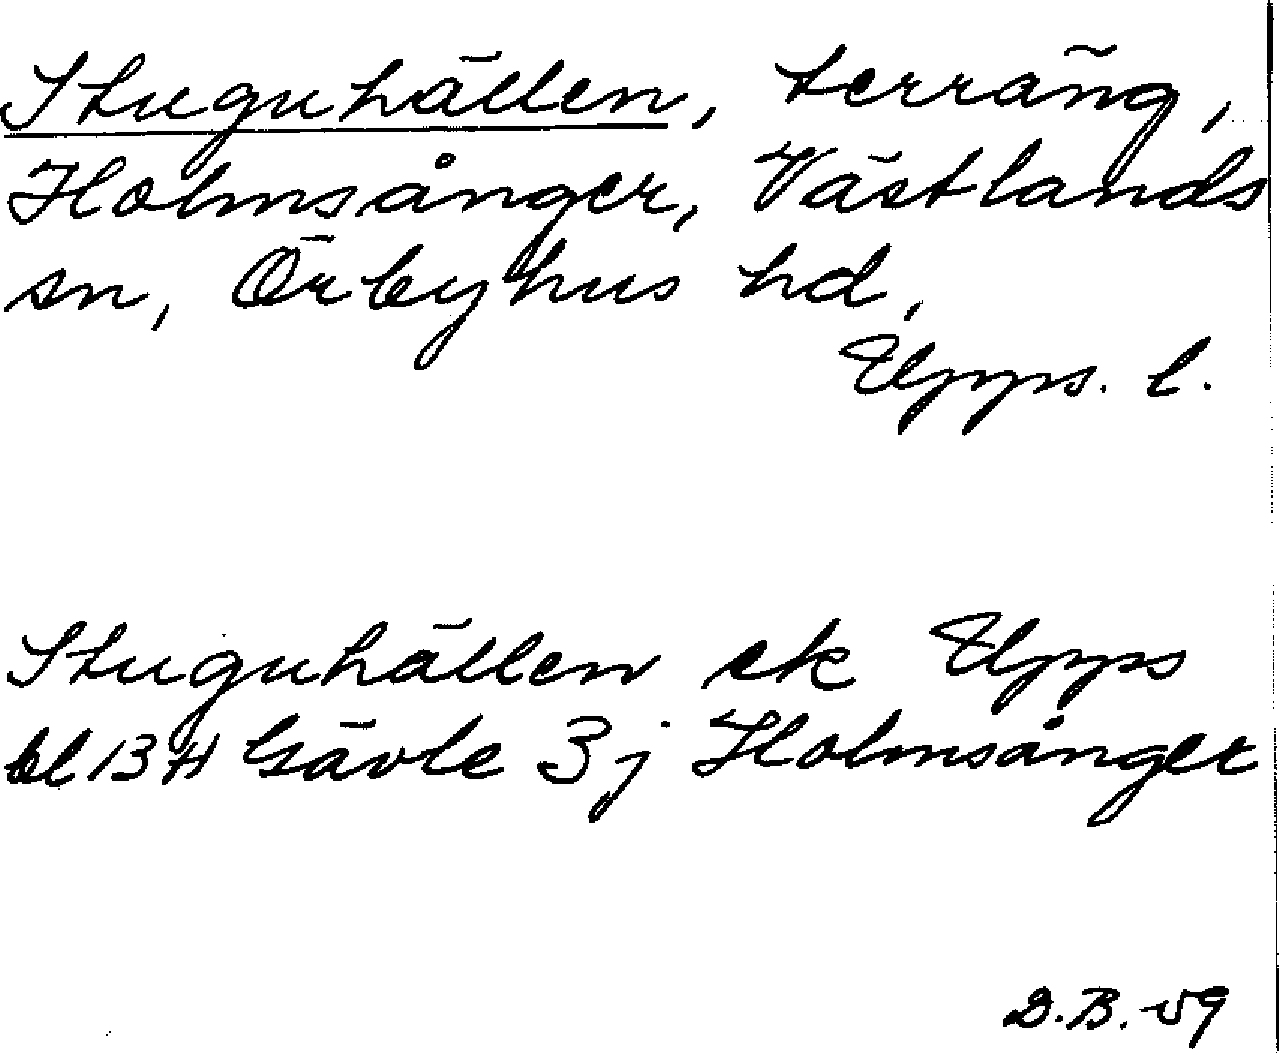 Stuguhällen, terräng,
Holmsånger, Västlands
sn, Örbyhus hd,
Upps. l.
Stuguhällen ek Upps
bl 13 H Gävle 3j Holmsånger
D.B. -59